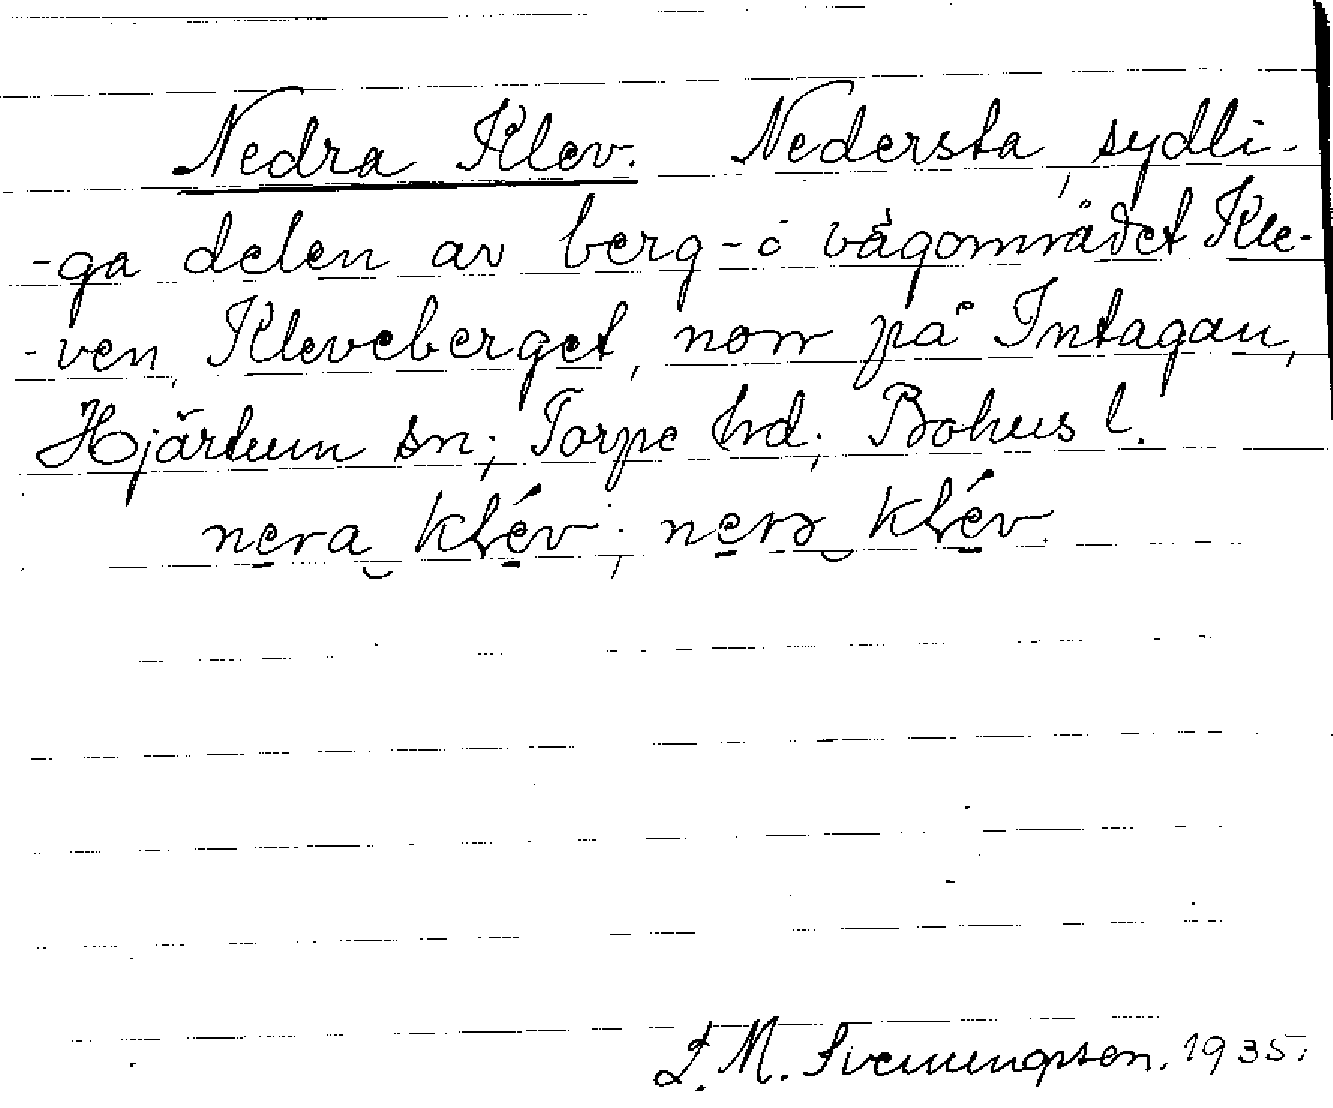 Nedra Klev. Nedersta, sydli-
-ga delen av berg- o vägområdet Kle-
-ven, Kleveberget, norr på Intagan,
Hjärtum sn; Torpe hd; Bohus l.
nera klév; nerə klév
M. Svenungsson. 1935.